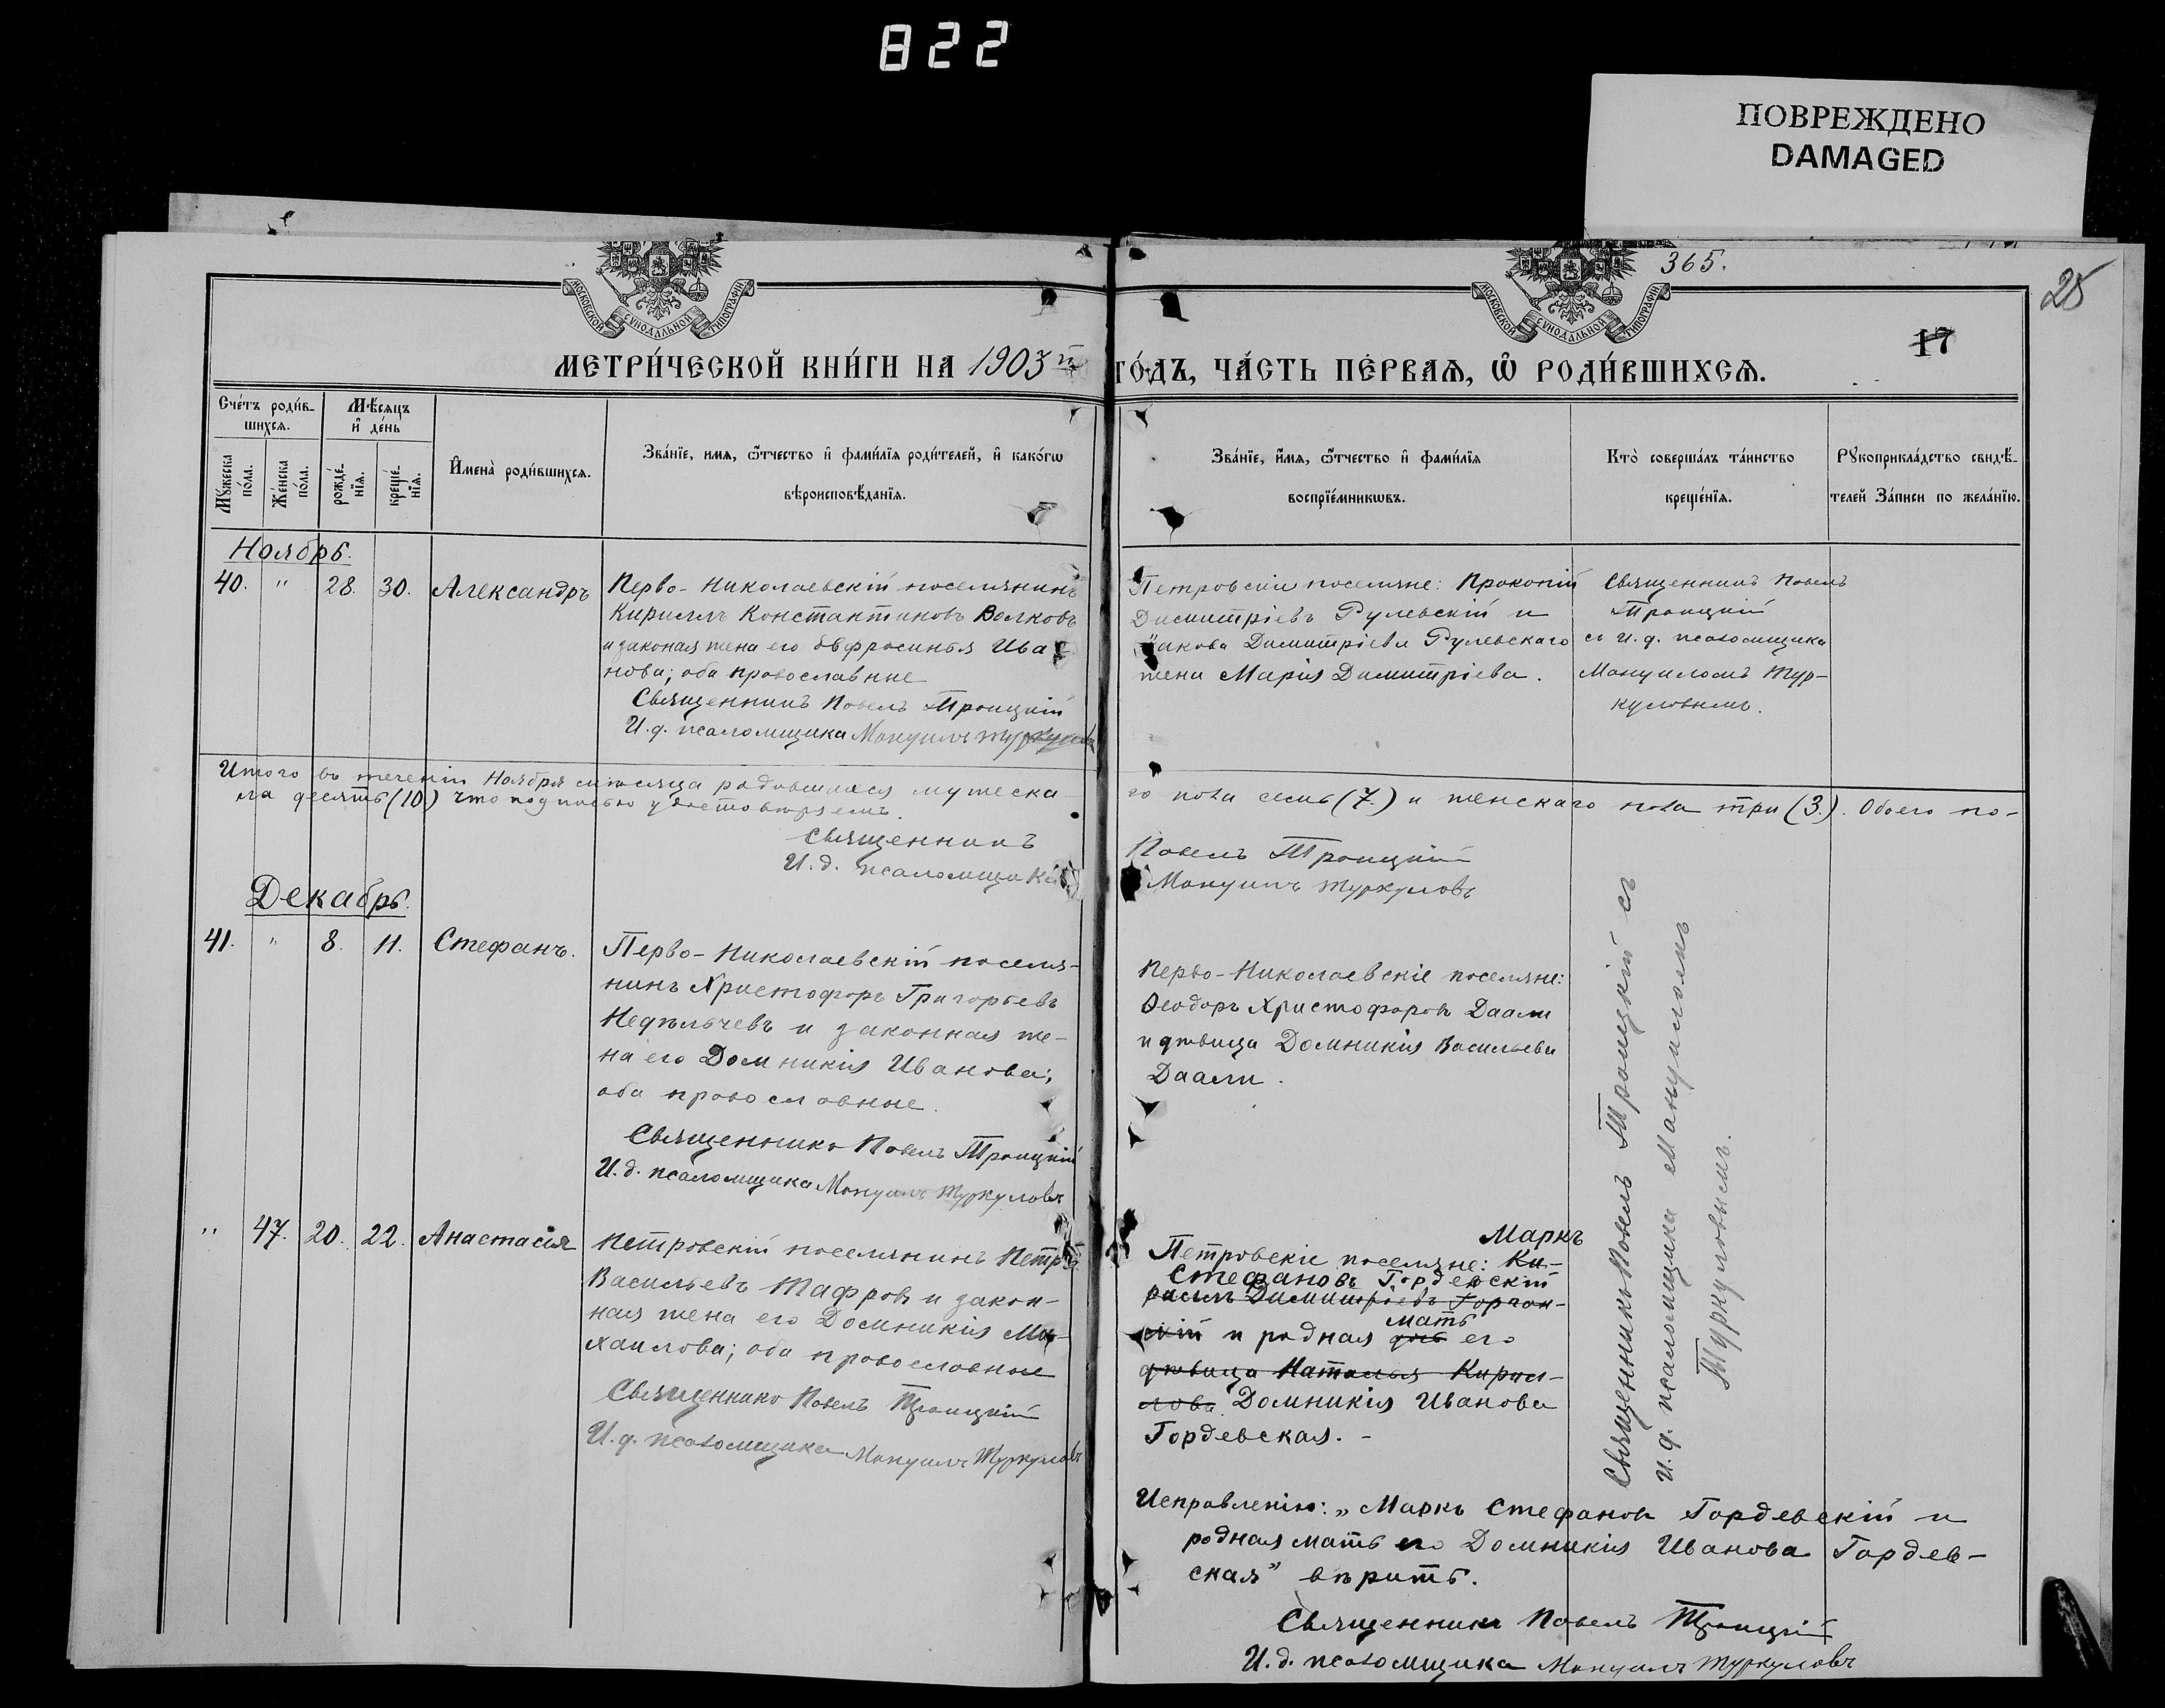 822
ПОВРЕЖДЕНО
DAMAGED
365.
25
17
МОСКОВСКОЙ СѴНОДАЛЬНОЙ ТИПОГРАФІИ
МОСКОВСКОЙ СѴНОДАЛЬНОЙ ТИПОГРАФІИ
МЕТРИ́ЧЕСКОЙ КНИ́ГИ НА 1903й ГО́ДЪ, ЧА́СТЬ ПЕ́РВАѦ, Ѡ҆ РОДИ́ВШИХСѦ.
Сче́тъ роди́в-
шихсѧ.
Мѣ́сѧцъ
и҆ де́нь
Мꙋ́жеска
по́ла.
Же́нска
по́ла.
рожде́-
нїѧ.
креще́-
нїѧ.
И҆мена̀ роди́вшихсѧ.
Зва́нїе, имѧ, ѻ҆́тчество и҆ фами́лїѧ роди́телей, и҆ како́гѡ
вѣроисповѣ́данїѧ.
Зва́нїе, и҆́мѧ, ѻ҆́тчество и҆ фами́лїѧ
воспрїе́мникѡвъ.
Кто̀ соверша́лъ та́инство
креще́нїѧ.
Рꙋкоприкла́дство свидѣ́-
телей За́писи по жела́нїю.
Ноябрь.
40. " 28. 30. Александръ
Перво-Николаевскій поселянинъ
Кириллъ Константиновъ Волковъ
и законая жена его Евфросинья Ива-
нова; оба православные
Священникъ Павелъ Троицкій
И. д. псаломщика Мануилъ Туркуловъ
Петровскіе поселяне: Прокопій
Димитріевъ Рулевскій и
Іакова Димитріева Рулевскаго
жена Марія Димитріева.
Священникъ Павелъ
Троицкій
съ И. д. псаломщика
Мануиломъ Тур-
куловымъ.
Итого въ теченіи Ноября мѣсяца родившихся мужеска-
го пола семь (7.) и женскаго пола три (3.). Обоего по-
ла десять (10.) что подписью удостовѣряемъ.
Священникъ Павелъ Троицкій
И. д. псаломщика Мануилъ Туркуловъ
Декабрь.
41. " 8. 11. Стефанъ.
Перво-Николаевскій поселя-
нинъ Христофоръ Григорьевъ
Недѣльчевъ и законная же-
на его Домникія Иванова;
оба православные.
Священникъ Павелъ Троицкій
И. д. псаломщика Мануилъ Туркуловъ
Перво-Николаевскіе поселяне:
Ѳеодоръ Христофоровъ Даали
и дѣвица Домникія Васильева
Даали.
Священникъ Павелъ Троицкій съ
И. д. псаломщика Мануиломъ
Туркуловымъ.
" 47. 20. 22. Анастасія
Петровскій поселянинъ Петръ
Васильевъ Тафровъ и закон-
ная жена его Домникія Ми-
хаилова; оба православные
Священникъ Павелъ Троицкій
И. д. псаломщика Мануилъ Туркуловъ
Маркъ
Петровскіе поселяне: Ки-
Стефановъ Гордевскій
риллъ Димитріевъ
мать
скій и родная дочь его
дѣвица Наталья Кирил-
лова Домникія Иванова
Гордевская.-
Исправленію: „Маркъ Стефановъ Гордевскій и
родная мать его Домникія Иванова Гордев-
ская" вѣрить.
Священникъ Павелъ Троицкій
И. д. псаломщика Мануилъ Туркуловъ